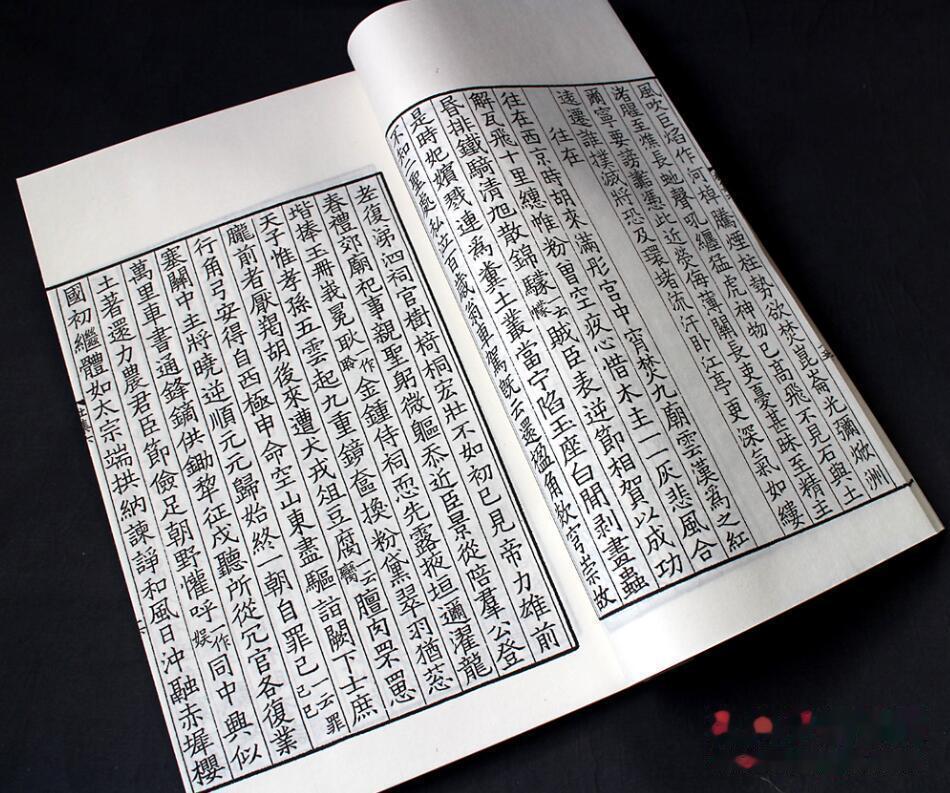 風吹巨焰作河棹騰煙柱勢欲焚崑崙光彌焮洲
渚腥至燋長蛇聲吼纏猛虎神物已高飛不見石與土
爾寧要謗讟憑此近熒侮薄關長吏憂甚昧至精主
遠遷誰撲滅將恐及環堵流汗卧江亭更深氣如縷
往在
往在西京時胡來滿彤宮中宵焚九廟雲漢為之紅
解瓦飛十里繐帷粉曽空疚心惜木主一一灰悲風合
昬排鐵騎清旭散錦㠓一云幪賊臣表逆節相賀以成功
是時妃嬪戮連為糞土叢當宁陷玉座白間剥畫蟲
不知二聖處私泣百歲翁車駕既云還楹桷欻穹崇故
老復涕泗祠官樹椅桐宏壯不如初已見帝力雄前
春禮郊廟祀事親聖躬微軀忝近臣景從陪羣公登
堦捧玉冊峩冕耿作聆金鍾侍祠恧先露掖垣邇濯龍
天子惟孝孫五雲起九重鏡奩換粉黛翠羽猶葱
朧前者厭羯胡後來遭犬戎俎豆腐一云膻肉罘罳
行角弓安得自西極申命空山東盡驅詣闕下士庶
塞關中主將曉逆順元元歸始終一朝自罪己一云罪己
萬里車書通鋒鏑供鋤犂征戍聽所從冗官各復業
土著還力農君臣節儉足朝野懽呼作娛同中興似
國初繼體如太宗端拱納諫諍和風日冲融赤墀櫻